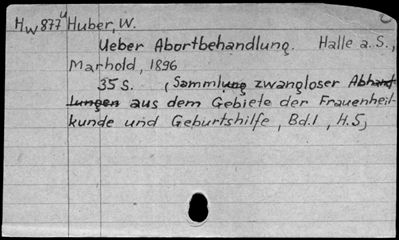 Hw 877u Huber, W.
Ueber Abortbehandlung. Halle a. S.,
Marhold, 1896
35 S. (Sammlung zwangloser Abhand-
lungen aus dem Gebiete der Frauenheil-
kunde und Geburtshilfe, Bd.1, H.5)